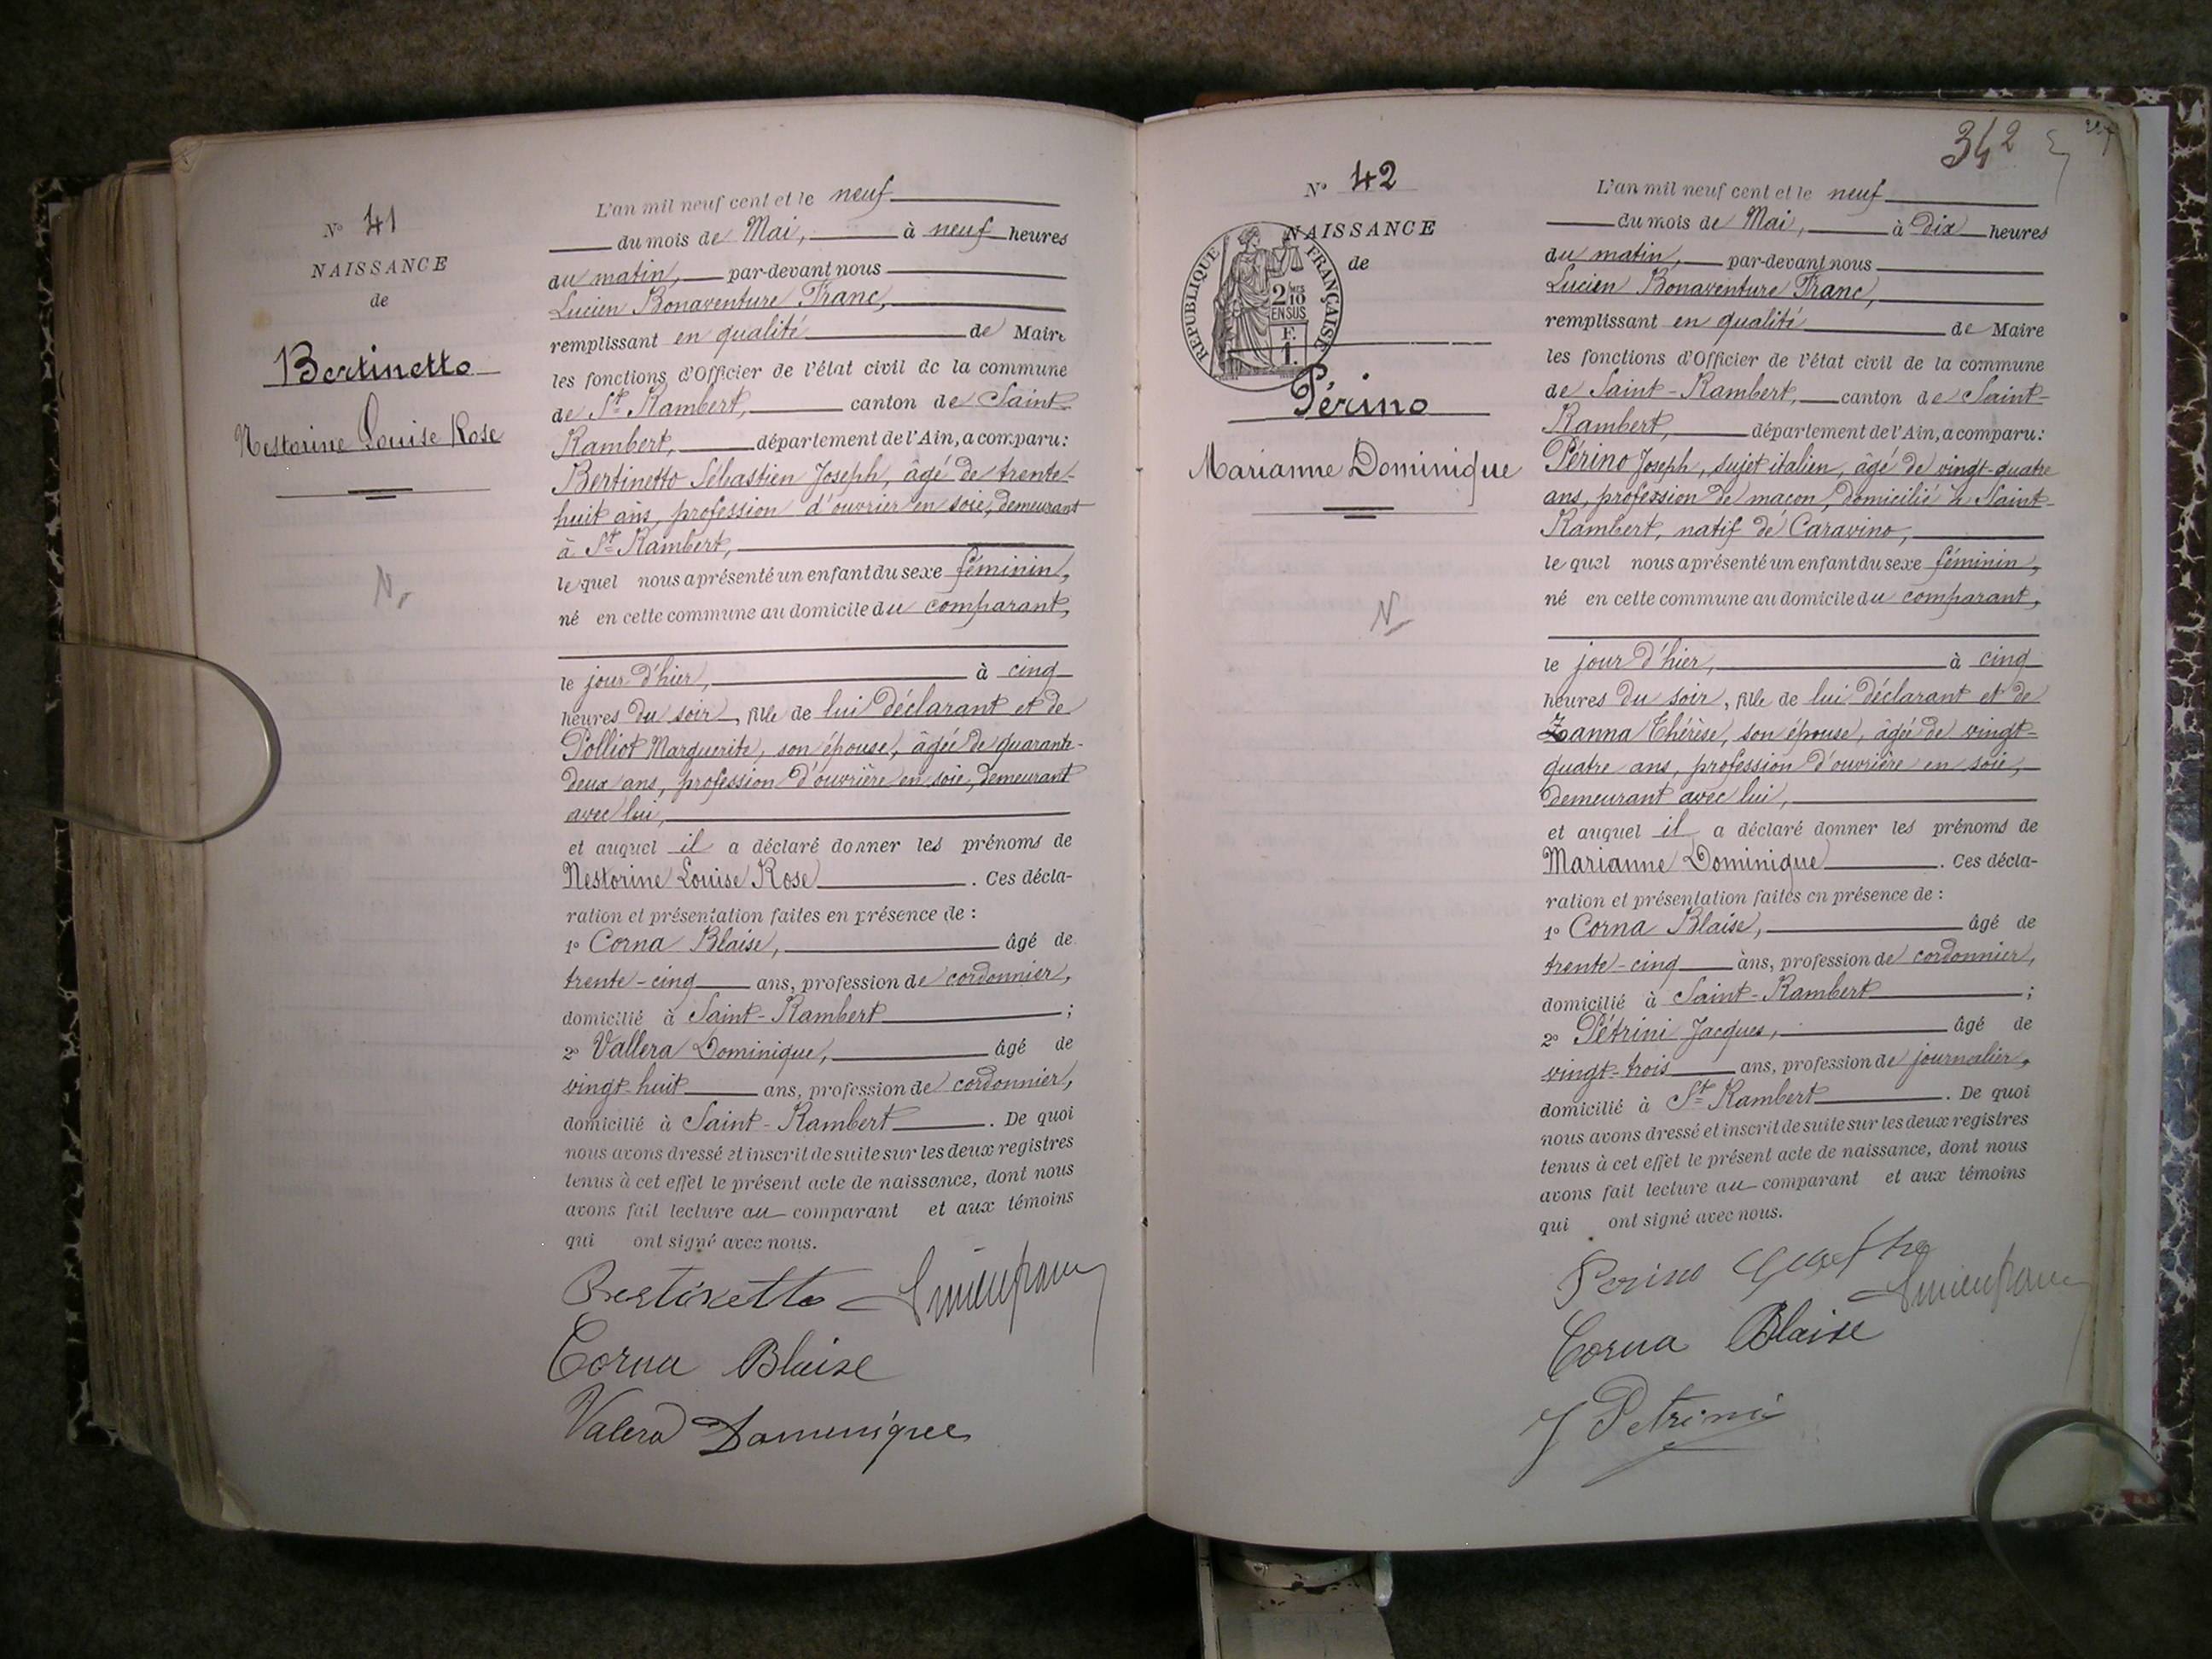 Nº 41
NAISSANCE
de
Bertinetto
Nestorine Louise Rose
N.
L'an mil neuf cent et le neuf
du mois de Mai, à neuf heures
du matin, par-devant nous
Lucien Bonaventure Franc,
remplissant en qualité de Maire
les fonctions d'Officier de l'état civil de la commune
de St Rambert, canton de Saint-
Rambert, département de l'Ain, a comparu:
Bertinetto Sébastien Joseph, âgé de trente-
huit ans, profession d'ouvrier en soie, demeurant
à St Rambert,
lequel nous a présenté un enfant du sexe féminin,
né en cette commune au domicile du comparant,
le jour d'hier, à cinq
heures du soir, fille de lui déclarant et de
Polliot Marguerite, son épouse, âgée de quarante-
deux ans, profession d'ouvrière en soie, demeurant
avec lui,
et auquel il a déclaré donner les prénoms de
Nestorine Louise Rose. Ces décla-
ration et présentation faites en présence de :
1º Corna Blaise, âgé de
trente-cinq ans, profession de cordonnier,
domicilié à Saint-Rambert ;
2º Vallera Dominique, âgé de
vingt-huit ans, profession de cordonnier,
domicilié à Saint-Rambert. De quoi
nous avons dressé et inscrit de suite sur les deux registres
tenus à cet effet le présent acte de naissance, dont nous
avons fait lecture au comparant et aux témoins
qui ont signé avec nous.
Bertinetto
Corna Blaise
Valera Dominique
342
Nº 42
NAISSANCE
de
RÉPUBLIQUE FRANÇAISE
2 10mes
EN SUS
F.
1.
Périno
Marianne Dominique
N
L'an mil neuf cent et le neuf
du mois de Mai, à dix heures
du matin, par-devant nous
Lucien Bonaventure Franc,
remplissant en qualité de Maire
les fonctions d'Officier de l'état civil de la commune
de Saint-Rambert, canton de Saint-
Rambert, département de l'Ain, a comparu:
Périno Joseph, sujet italien, âgé de vingt-quatre
ans, profession de maçon, domicilié à Saint-
Rambert, natif de Caravino,
lequel nous a présenté un enfant du sexe féminin,
né en cette commune au domicile du comparant,
le jour d'hier, à cinq
heures du soir, fille de lui déclarant et de
Zanna Thérèse, son épouse, âgée de vingt-
quatre ans, profession d'ouvrière en soie,
demeurant avec lui,
et auquel il a déclaré donner les prénoms de
Marianne Dominique. Ces décla-
ration et présentation faites en présence de :
1º Corna Blaise, âgé de
trente-cinq ans, profession de cordonnier,
domicilié à Saint-Rambert ;
2º Pétrini Jacques, âgé de
vingt-trois ans, profession de journalier,
domicilié à St Rambert. De quoi
nous avons dressé et inscrit de suite sur les deux registres
tenus à cet effet le présent acte de naissance, dont nous
avons fait lecture au comparant et aux témoins
qui ont signé avec nous.
Perino
Corna Blaise
J Petrini